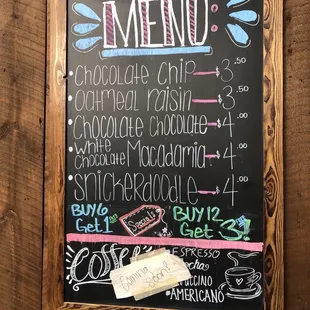 MENU
chocolate chip - 3.50
oatmeal raisin - 3.50
chocolate chocolate - 4.00
white
chocolate Macadamia - 4.00
snickerdoodle - 4.00
BUY 6 Specials BUY 12
Get 1 Get 3!
Coffee ESPRESSO
Coming
soon!
#AMERICANO